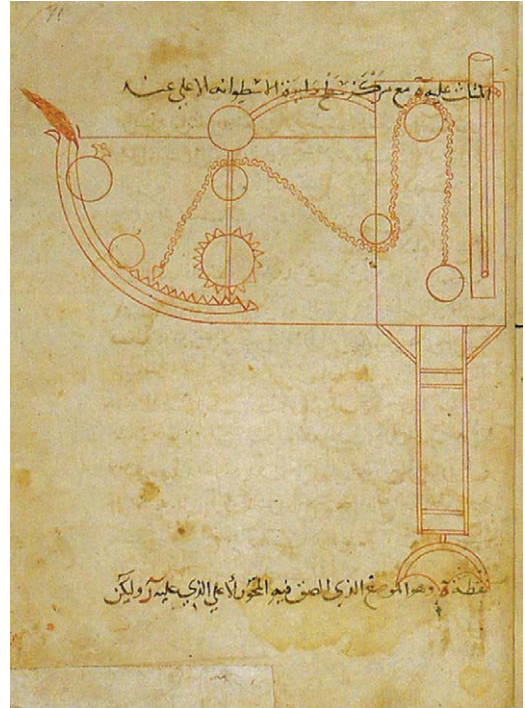 المثلث عليه ه مع مركز سطح دايرة الاسطوانه الاعلي عند
نقطة ة وهو الموضع الذي الصق فيه المحور الاعلي الذي عليه ر ولكن